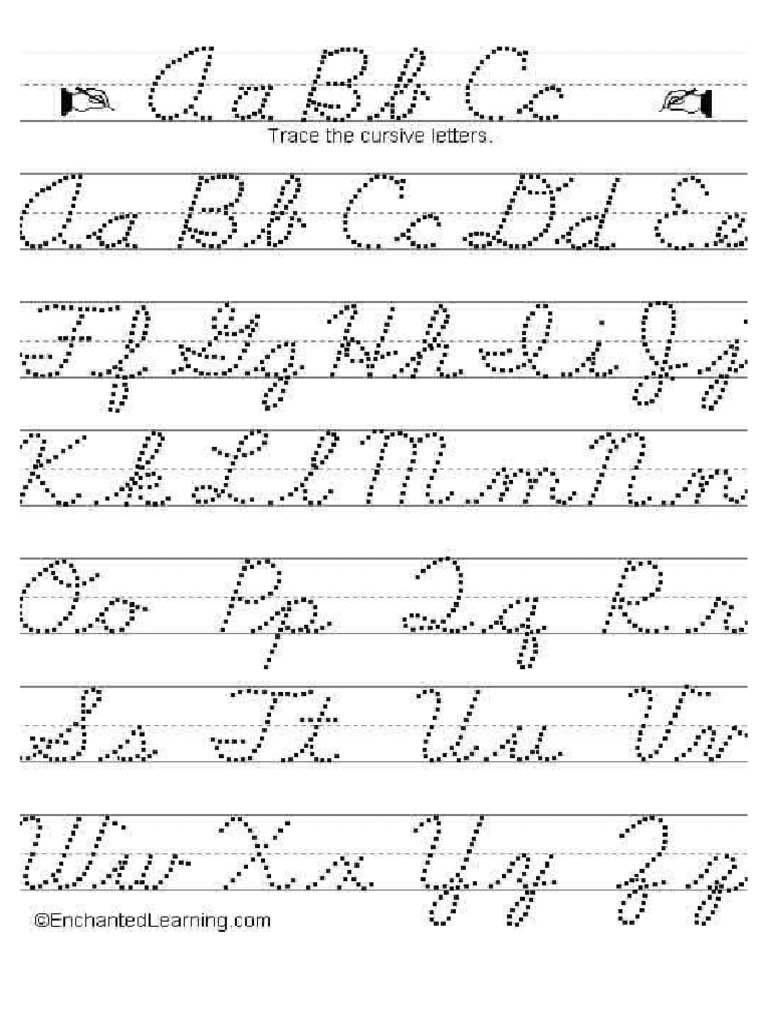 Aa Bb Cc
Trace the cursive letters.
Aa Bb Cc Dd Ee
Ff Gg Hh Ii Jj
Kk Ll Mm Nn
Oo Pp Qq Rr
Ss Tt Uu Vv
Ww Xx Yy Zz
©EnchantedLearning.com